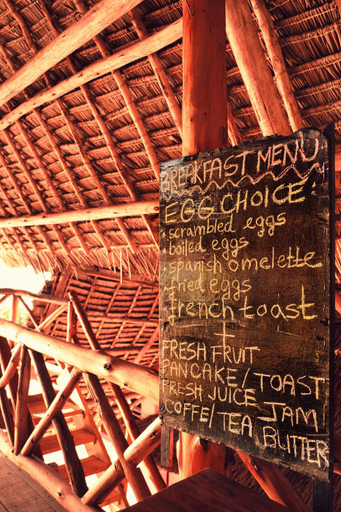 BREAKFAST MENU
EGG CHOICE:
scrambled eggs
• boiled eggs
• spanish omelette
• fried eggs
• french toast
+
FRESH FRUIT
PANCAKE/TOAST
FRESH JUICE JAM
COFFE/TEA, BUTTER